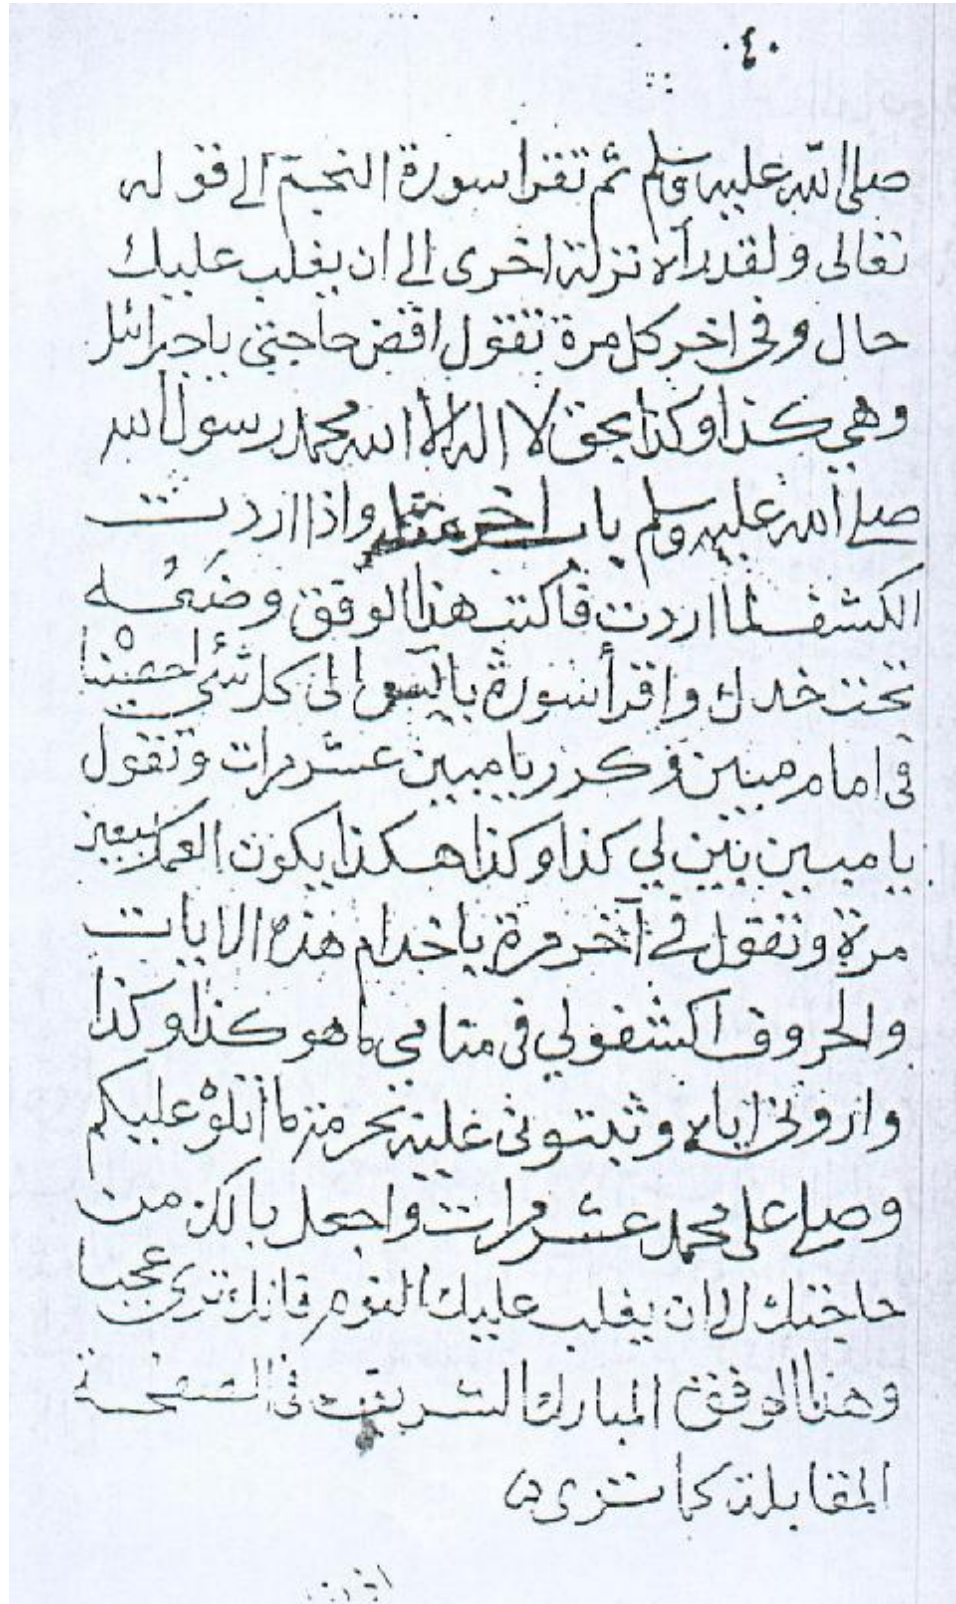 ٤٠
صلى الله عليه وسلم ثم تقرا سورة النجم الى قوله
تعالى ولقد رآه نزلة اخرى الى ان يغلب عليك
حال وفى اخر كل مرة تقول اقض حاجتى يا جبرائل
وهى كذا وكذا بحق لا اله الا الله محمد رسول الله
صلى الله عليه وسلم باب اخر واذا اردت
الكشف لما اردت فاكتب هذا الوفق وضعه
تحت خدك واقرأ سورة يا الى كل شئ احصيناه
فى امام مبين وكرر يا مبين عشر مرات وتقول
يا مبين بين لي كذا وكذا هكذا يكون العمل
مرة وتقول فى آخر مرة يا خدام هذه الايات
والحروف اكشفولي فى منامى ما هو كذا وكذا
وارونى اياه وثبتونى عليه بحرمة ما اتلوه عليكم
وصلى على محمد عشر مرات واجعل بالك من
حاجتك الى ان يغلب عليك النوم فانك ترى عجبا
وهذا الوفق المبارك الشريف فى الصفحة
المقابلة كما ترى